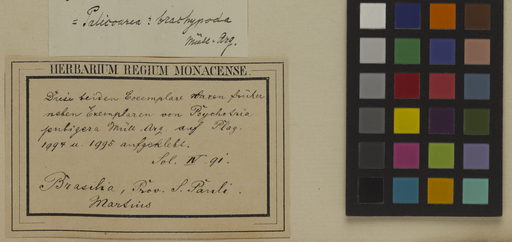 = Palicourea : brachypoda
Müll. Arg.
HERBARIUM REGIUM MONACENSE.
Diese beiden Exemplare waren früher
neben Exemplaren von Psychotria
pubigera Müll. Arg auf Plag.
1994 u. 1995 aufgeklebt.
Sol. IV 91.
Brasilia, Prov. S. Pauli.
Martius